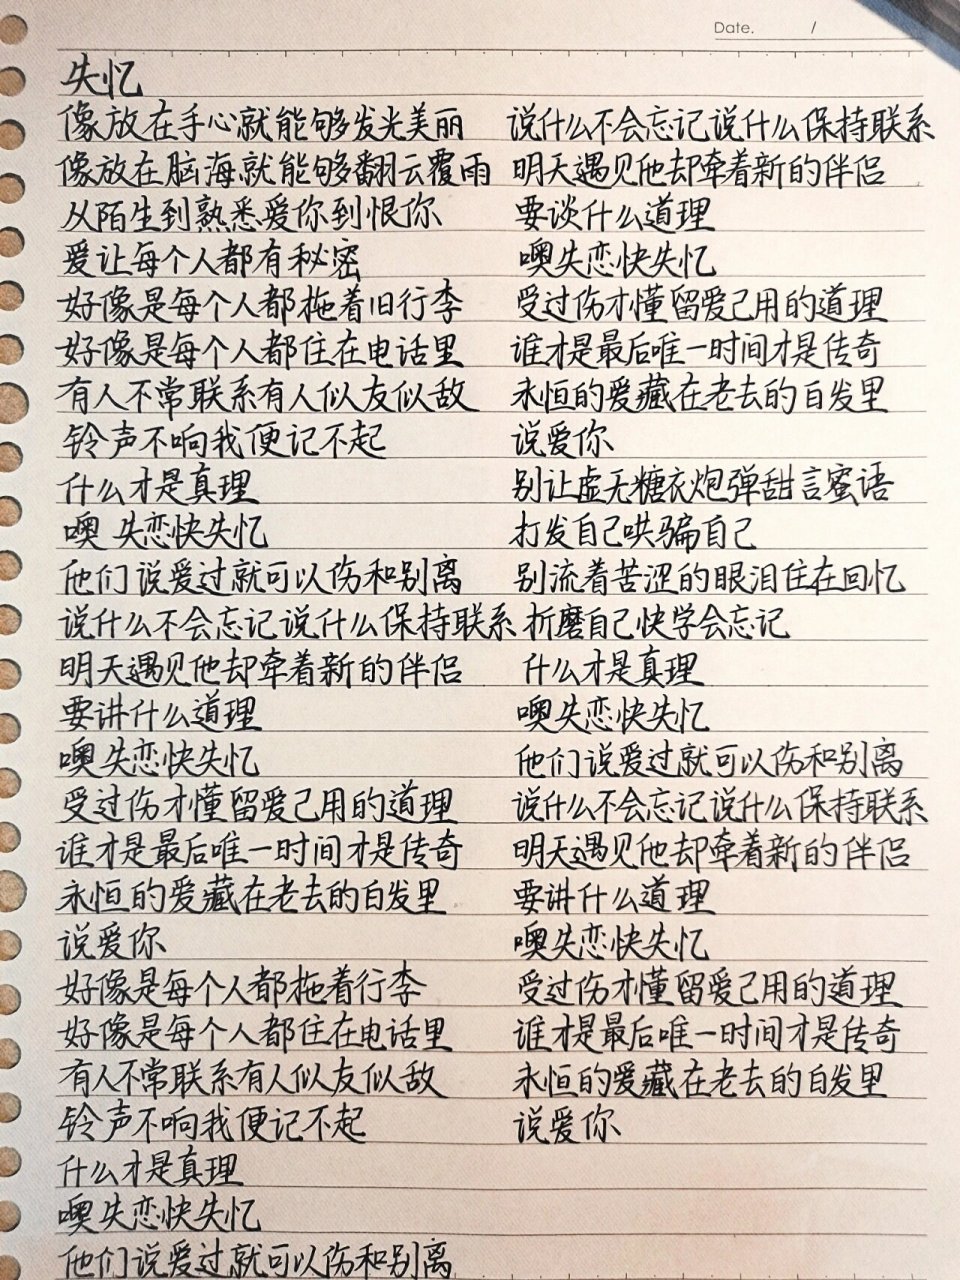 Date. /
失忆
像放在手心就能够发光美丽
像放在脑海就能够翻云覆雨
从陌生到熟悉爱你到恨你
爱让每个人都有秘密
好像是每个人都拖着旧行李
好像是每个人都住在电话里
有人不常联系有人似友似敌
铃声不响我便记不起
什么才是真理
噢失恋快失忆
他们说爱过就可以伤和别离
说什么不会忘记说什么保持联系
明天遇见他却牵着新的伴侣
要讲什么道理
噢失恋快失忆
受过伤才懂留爱己用的道理
谁才是最后唯一时间才是传奇
永恒的爱藏在老去的白发里
说爱你
好像是每个人都拖着行李
好像是每个人都住在电话里
有人不常联系有人似友似敌
铃声不响我便记不起
什么才是真理
噢失恋快失忆
他们说爱过就可以伤和别离
说什么不会忘记说什么保持联系
明天遇见他却牵着新的伴侣
要谈什么道理
噢失恋快失忆
受过伤才懂留爱己用的道理
谁才是最后唯一时间才是传奇
永恒的爱藏在老去的白发里
说爱你
别让虚无糖衣炮弹甜言蜜语
打发自己哄骗自己
别流着苦涩的眼泪住在回忆
折磨自己快学会忘记
什么才是真理
噢失恋快失忆
他们说爱过就可以伤和别离
说什么不会忘记说什么保持联系
明天遇见他却牵着新的伴侣
要讲什么道理
噢失恋快失忆
受过伤才懂留爱己用的道理
谁才是最后唯一时间才是传奇
永恒的爱藏在老去的白发里
说爱你